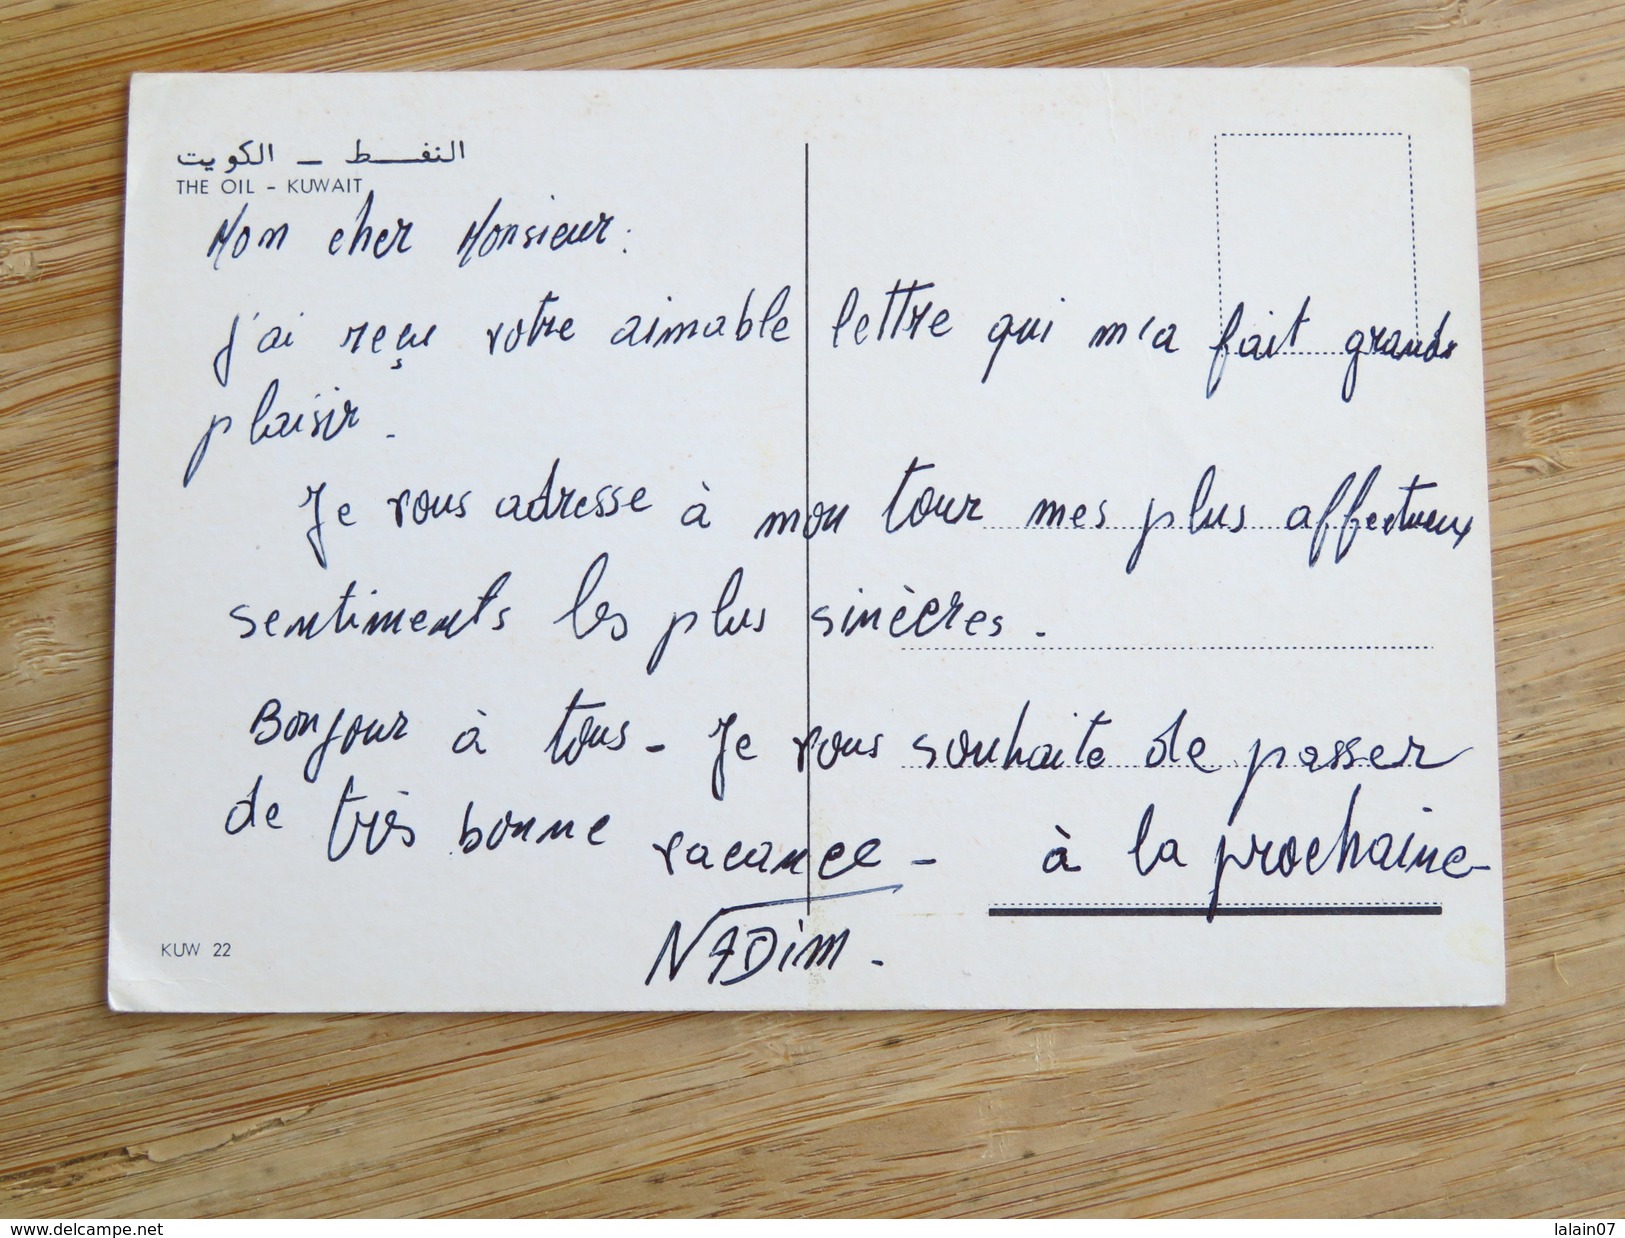 النفـــط – الكويت
THE OIL - KUWAIT
Mon cher Monsieur:
J'ai reçu votre aimable lettre qui m'a fait grande
plaisir.
Je vous adresse à mon tour mes plus affectueux
sentiments les plus sincères.
Bonjour à tous - Je vous souhaite de passer
de très bonne vacance - à la prochaine-
NADim.
KUW 22
www.delcampe.net
lalain07